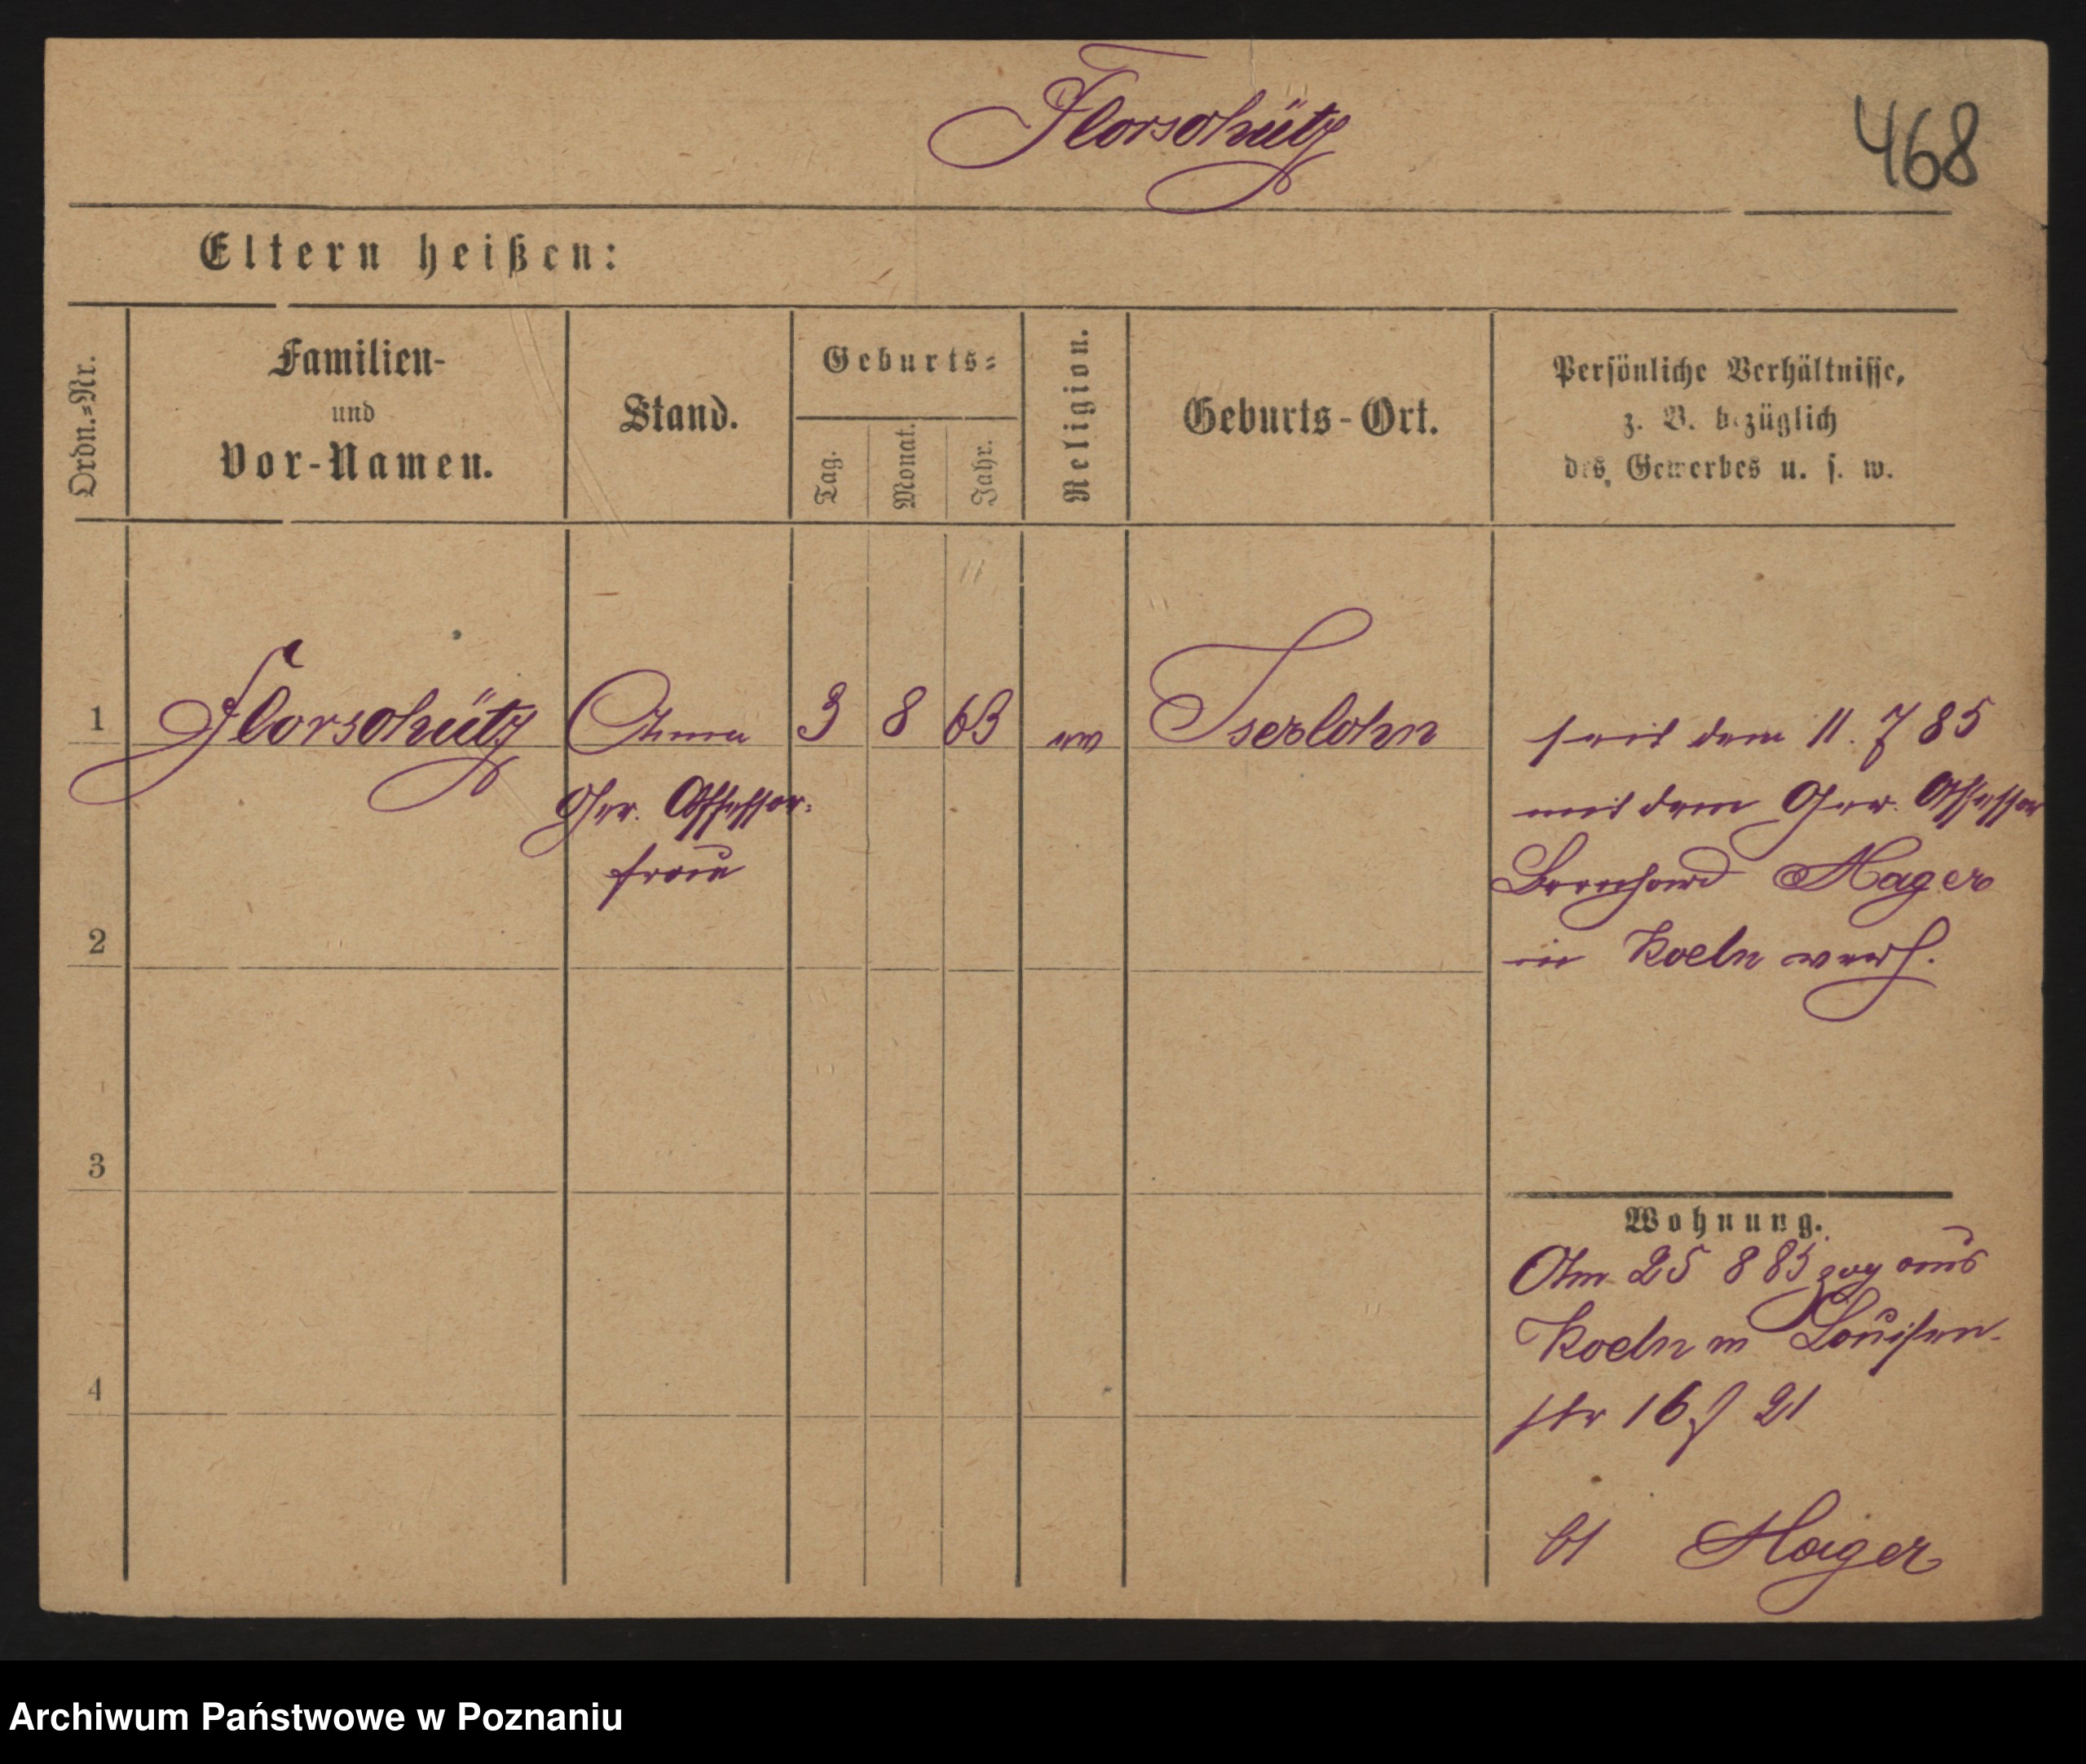 Florschütz
468
Eltern heißen:
Ordn.-Nr.
Familien-
und
Vor-Namen.
Stand.
Geburts-
Tag.
Monat.
Jahr.
Religion.
Geburts-Ort.
Persönliche Verhältnisse,
z. B. bezüglich
des Gewerbes u. s. w.
1 Florschütz Anna 3 8 63 ev Iserlohn
Ger. Assessor-
frau
seit dem 11. 7 85
mit dem Ger. Assessor
Bernhard Hager
in Koeln verh.
2
3
4
Wohnung.
Am 25 8 85 zog aus
Koeln n Louisen-
str 16 f 21
bei Hager
Archiwum Państwowe w Poznaniu